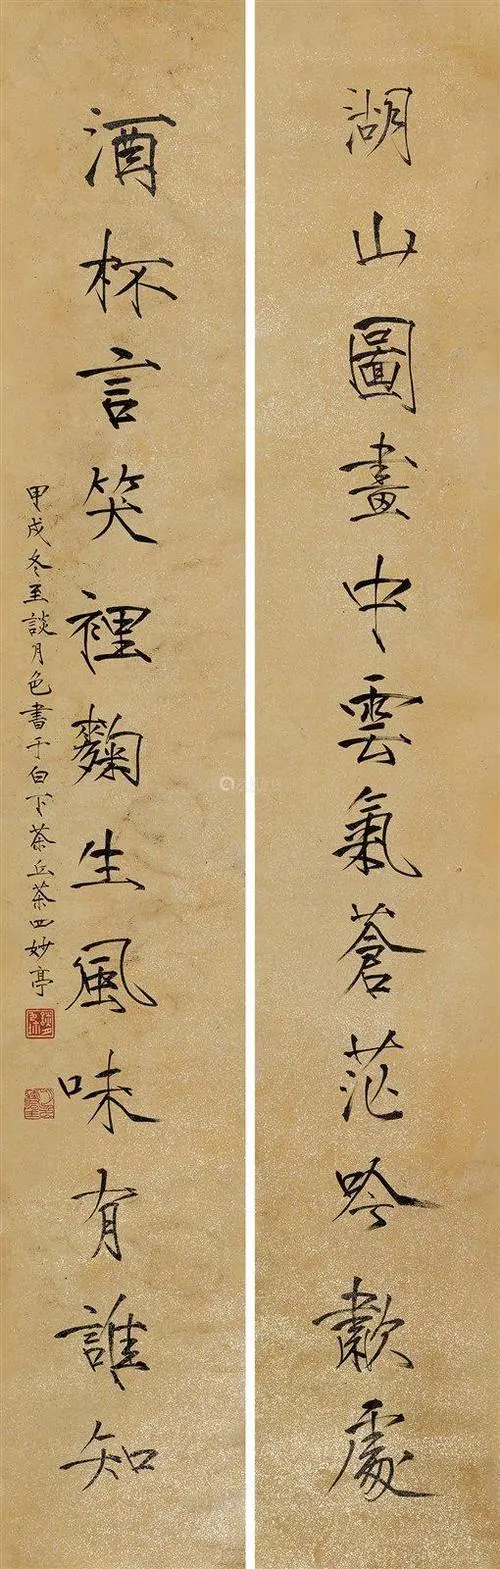 湖山圖畫中雲氣蒼茫吟歗處
酒杯言笑裡麴生風味有誰知
甲戌冬至談月色書于白下茶丘茶四妙亭